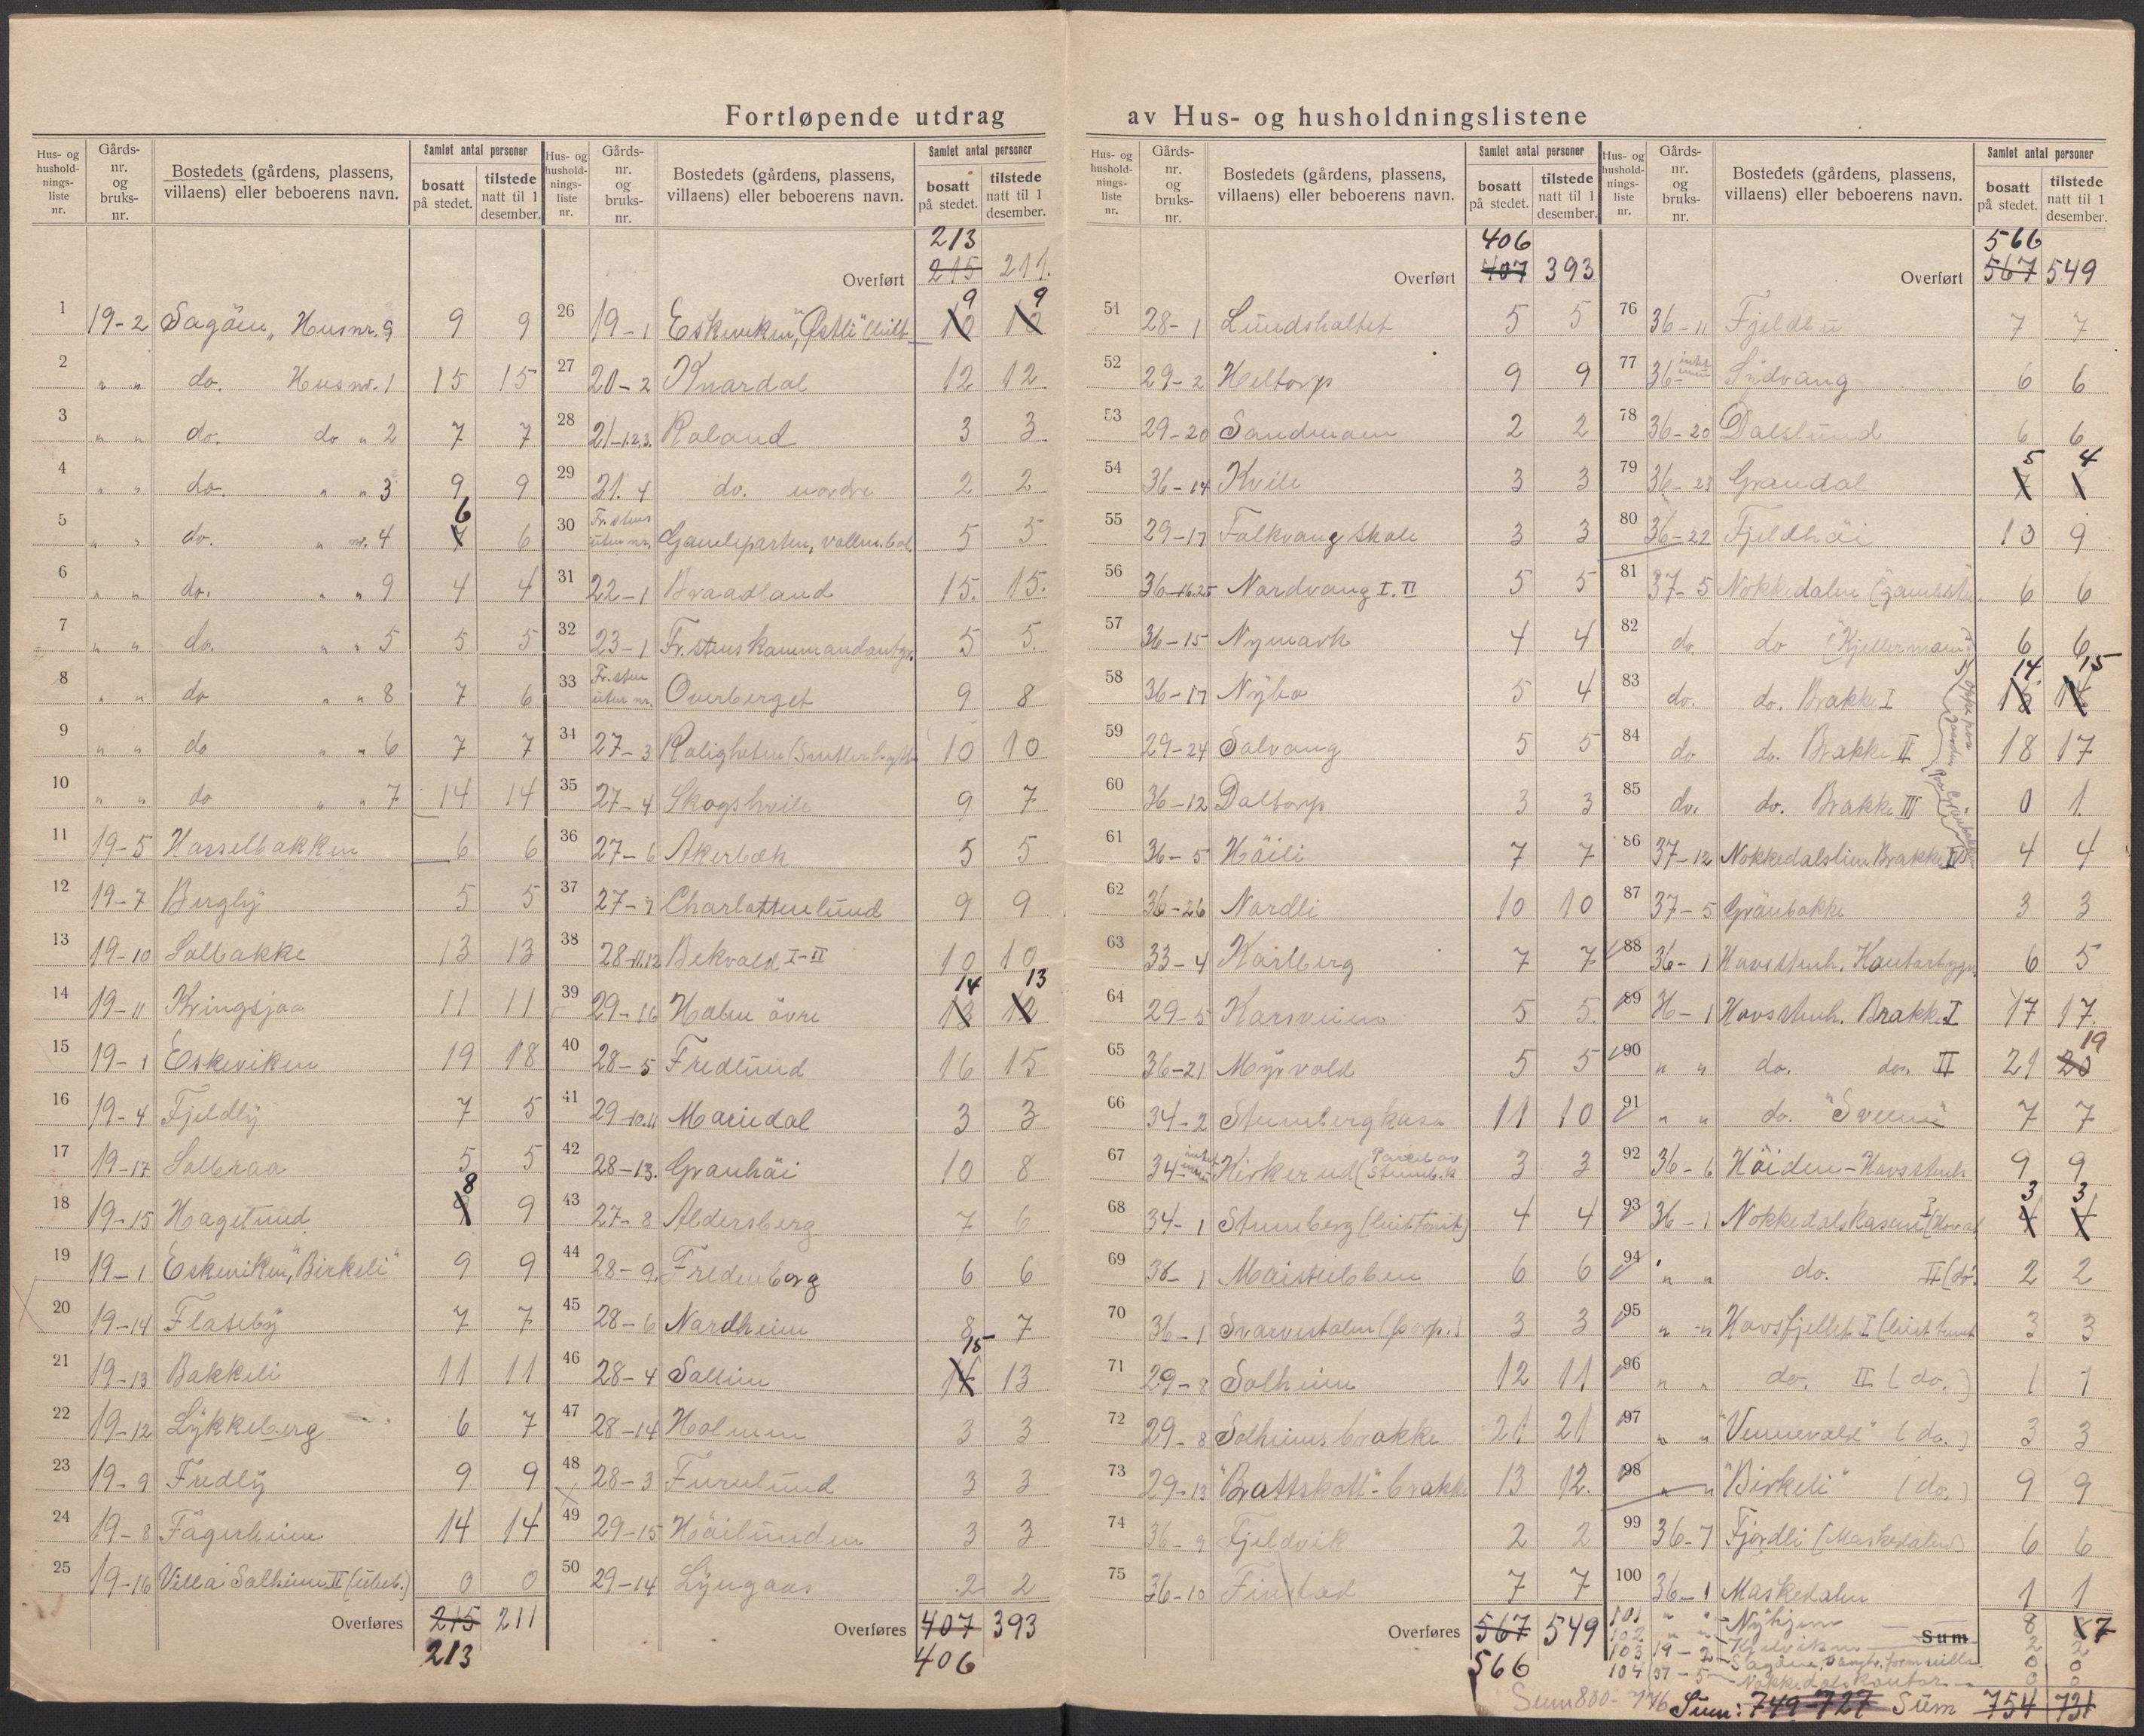 Fortløpende utdrag av Hus- og husholdningslistene
Hus- og hushold-nings-liste nr. | Gårds-nr. og bruks-nr. | Bostedets (gårdens, plassens, villaens) eller beboerens navn. | Samlet antal personer | bosatt på stedet. | tilstede natt til 1 desember.
1 19-2 Sagöen, Husnr. 9 9 9
2 " " do. Husnr. 1 15 15
3 " " do. do " 2 7 7
4 " " do. " " 3 9 9
5 " " do. " nr. 4 7 6 6
6 " " do. " " 9 4 4
7 " " do. " " 5 5 5
8 " " do " " 8 7 6
9 " " do " " 6 7 7
10 " " do " " 7 14 14
11 19-5 Hasselbakken 6 6
12 19-7 Bergly 5 5
13 19-10 Solbakke 13 13
14 19-11 Kringsjaa 11 11
15 19-1 Eskeviken 19 18
16 19-4 Fjeldly 7 5
17 19-17 Solbraa 5 5
18 19-15 Hagelund 9 8 9
19 19-1 Eskeviken, "Birkeli" 9 9
20 19-14 Flaseby 7 7
21 19-13 Bakkeli 11 11
22 19-12 Lykkeberg 6 7
23 19-9 Fredly 9 9
24 19-8 Fagerheim 14 14
25 19-16 Villa Solheim II (ubeb.) 0 0
Overføres 215 211
213
Hus- og hushold-nings-liste nr. | Gårds-nr. og bruks-nr. | Bostedets (gårdens, plassens, villaens) eller beboerens navn. | Samlet antal personer | bosatt på stedet. | tilstede natt til 1 desember.
213
Overført 215 211.
26 19-1 Eskeviken, "Østli" 10 9 10 9
27 20-2 Knardal 12 12
28 21-1.2.3. Roland 3 3
29 21.4 do. nordre 2 2
30 Fr.stens uten nr. Gamleparten, 5 5
31 22-1 Braadland 15. 15.
32 23-1 Fr.stens Kommandantgr. 5 5.
33 Fr.sten uten nr. Overberget 9 8
34 27-3 Roligheten 10 10
35 27-4 Skogshvile 9 7
36 27-6 Akerbæk 5 5
37 27-7 Charlottenlund 9 9
38 28-11.12 Bekvold I-II 10 10
39 29-16 Holm övre 13 14 12 13
40 28-5 Fredlund 16 15
41 29-10.11 Mariedal 3 3
42 28-13. Granhöi 10 8
43 27-8 Aldersberg 7 6
44 28-9. Fredenborg 6 6
45 28-6 Nordheim 8 7
46 28-4 Sollien 14 15 13
47 28-14 Holmen 3 3
48 28-3 Furulund 3 3
49 29-15 Höilunden 3 3
50 29-14 Lyngaas 2 2
Overføres 407 393
406
Hus- og hushold-nings-liste nr. | Gårds-nr. og bruks-nr. | Bostedets (gårdens, plassens, villaens) eller beboerens navn. | Samlet antal personer | bosatt på stedet. | tilstede natt til 1 desember.
406
Overført 407 393
51 28-1 Lundsholtet 5 5
52 29-2 Heltorp 9 9
53 29-20 Sandmoen 2 2
54 36-14 Kvile 3 3
55 29-17 Folkvang skole 3 3
56 36-16.25 Nordvang I. II 5 5
57 36-15 Nymark 4 4
58 36-17 Nybo 5 4
59 29-24 Solvang 5 5
60 36-12 Daltorp 3 3
61 36-5 Höili 7 7
62 36-26 Nordli 10 10
63 33-4 Karlberg 7 7
64 29-5 Korsveien 5 5.
65 36-21 Myrvold 5 5
66 34-2 Stumbergkasa 11 10
67 34- Kirkerud (Parcel av Stumb.k 3 3
68 34-1 Stumberg 4 4
69 36-1 Maistubben 6 6
70 36-1 Svarvestolen (forp.) 3 3
71 29-8 Solheim 12 11
72 29-8 Solheims brakke 21 21
73 29-13 "Brattskott"-brakke 13 12.
74 36-9 Fjeldvik 2 2
75 36-10 Finstad 7 7
Overføres 567 549
566
Hus- og hushold-nings-liste nr. | Gårds-nr. og bruks-nr. | Bostedets (gårdens, plassens, villaens) eller beboerens navn. | Samlet antal personer | bosatt på stedet. | tilstede natt til 1 desember.
566
Overført 567 549
76 36-11 Fjeldbu 7 7
77 36- Sydvang 6 6
78 36-20 Dalslund 6 6
79 36-23 Grandal 5 4
80 36-22 Fjeldhöi 10 9
81 37-5 Nokkedalen 6 6
82 do. do (Kjellerman 6 6
83 do. do. Brakke I 14 15
84 do do. Brakke II 18 17
85 do. do. Brakke III 0 1.
86 37-12 Nokkedalslien Brakke 4 4
87 37-5 Grönbakke 3 3
88 36-1 Havsstenh. Kontorbygn. 6 5
89 36-1 Havsstenh. Brakke I 17 17.
90 " " do. do. II 21 20 19
91 " " do. "Sveum" 7 7
92 36-6 Höiden-Havsstenh 9 9
93 36-1 Nokkedalskasen I 4 3 4 3
94 " " do. II (do. 2 2
95 " " Havsfjellet I 3 3
96 " " do. II (do.) 1 1
97 " " "Vennevold" (do.) 3 3
98 " " "Birkeli" (do.) 9 9
99 36-7 Fjordli (Maskedalen) 6 6
100 36-1 Maskedalen 1 1
101 " " Nyhjem 8 7
102 " " Kjelviken Sum 2 2
103 19-2 Sagöen, 0 0
104 37-5 Nokkedalskontor 0 0
Sum 800-776 Sum: 749-727 Sum 754 731